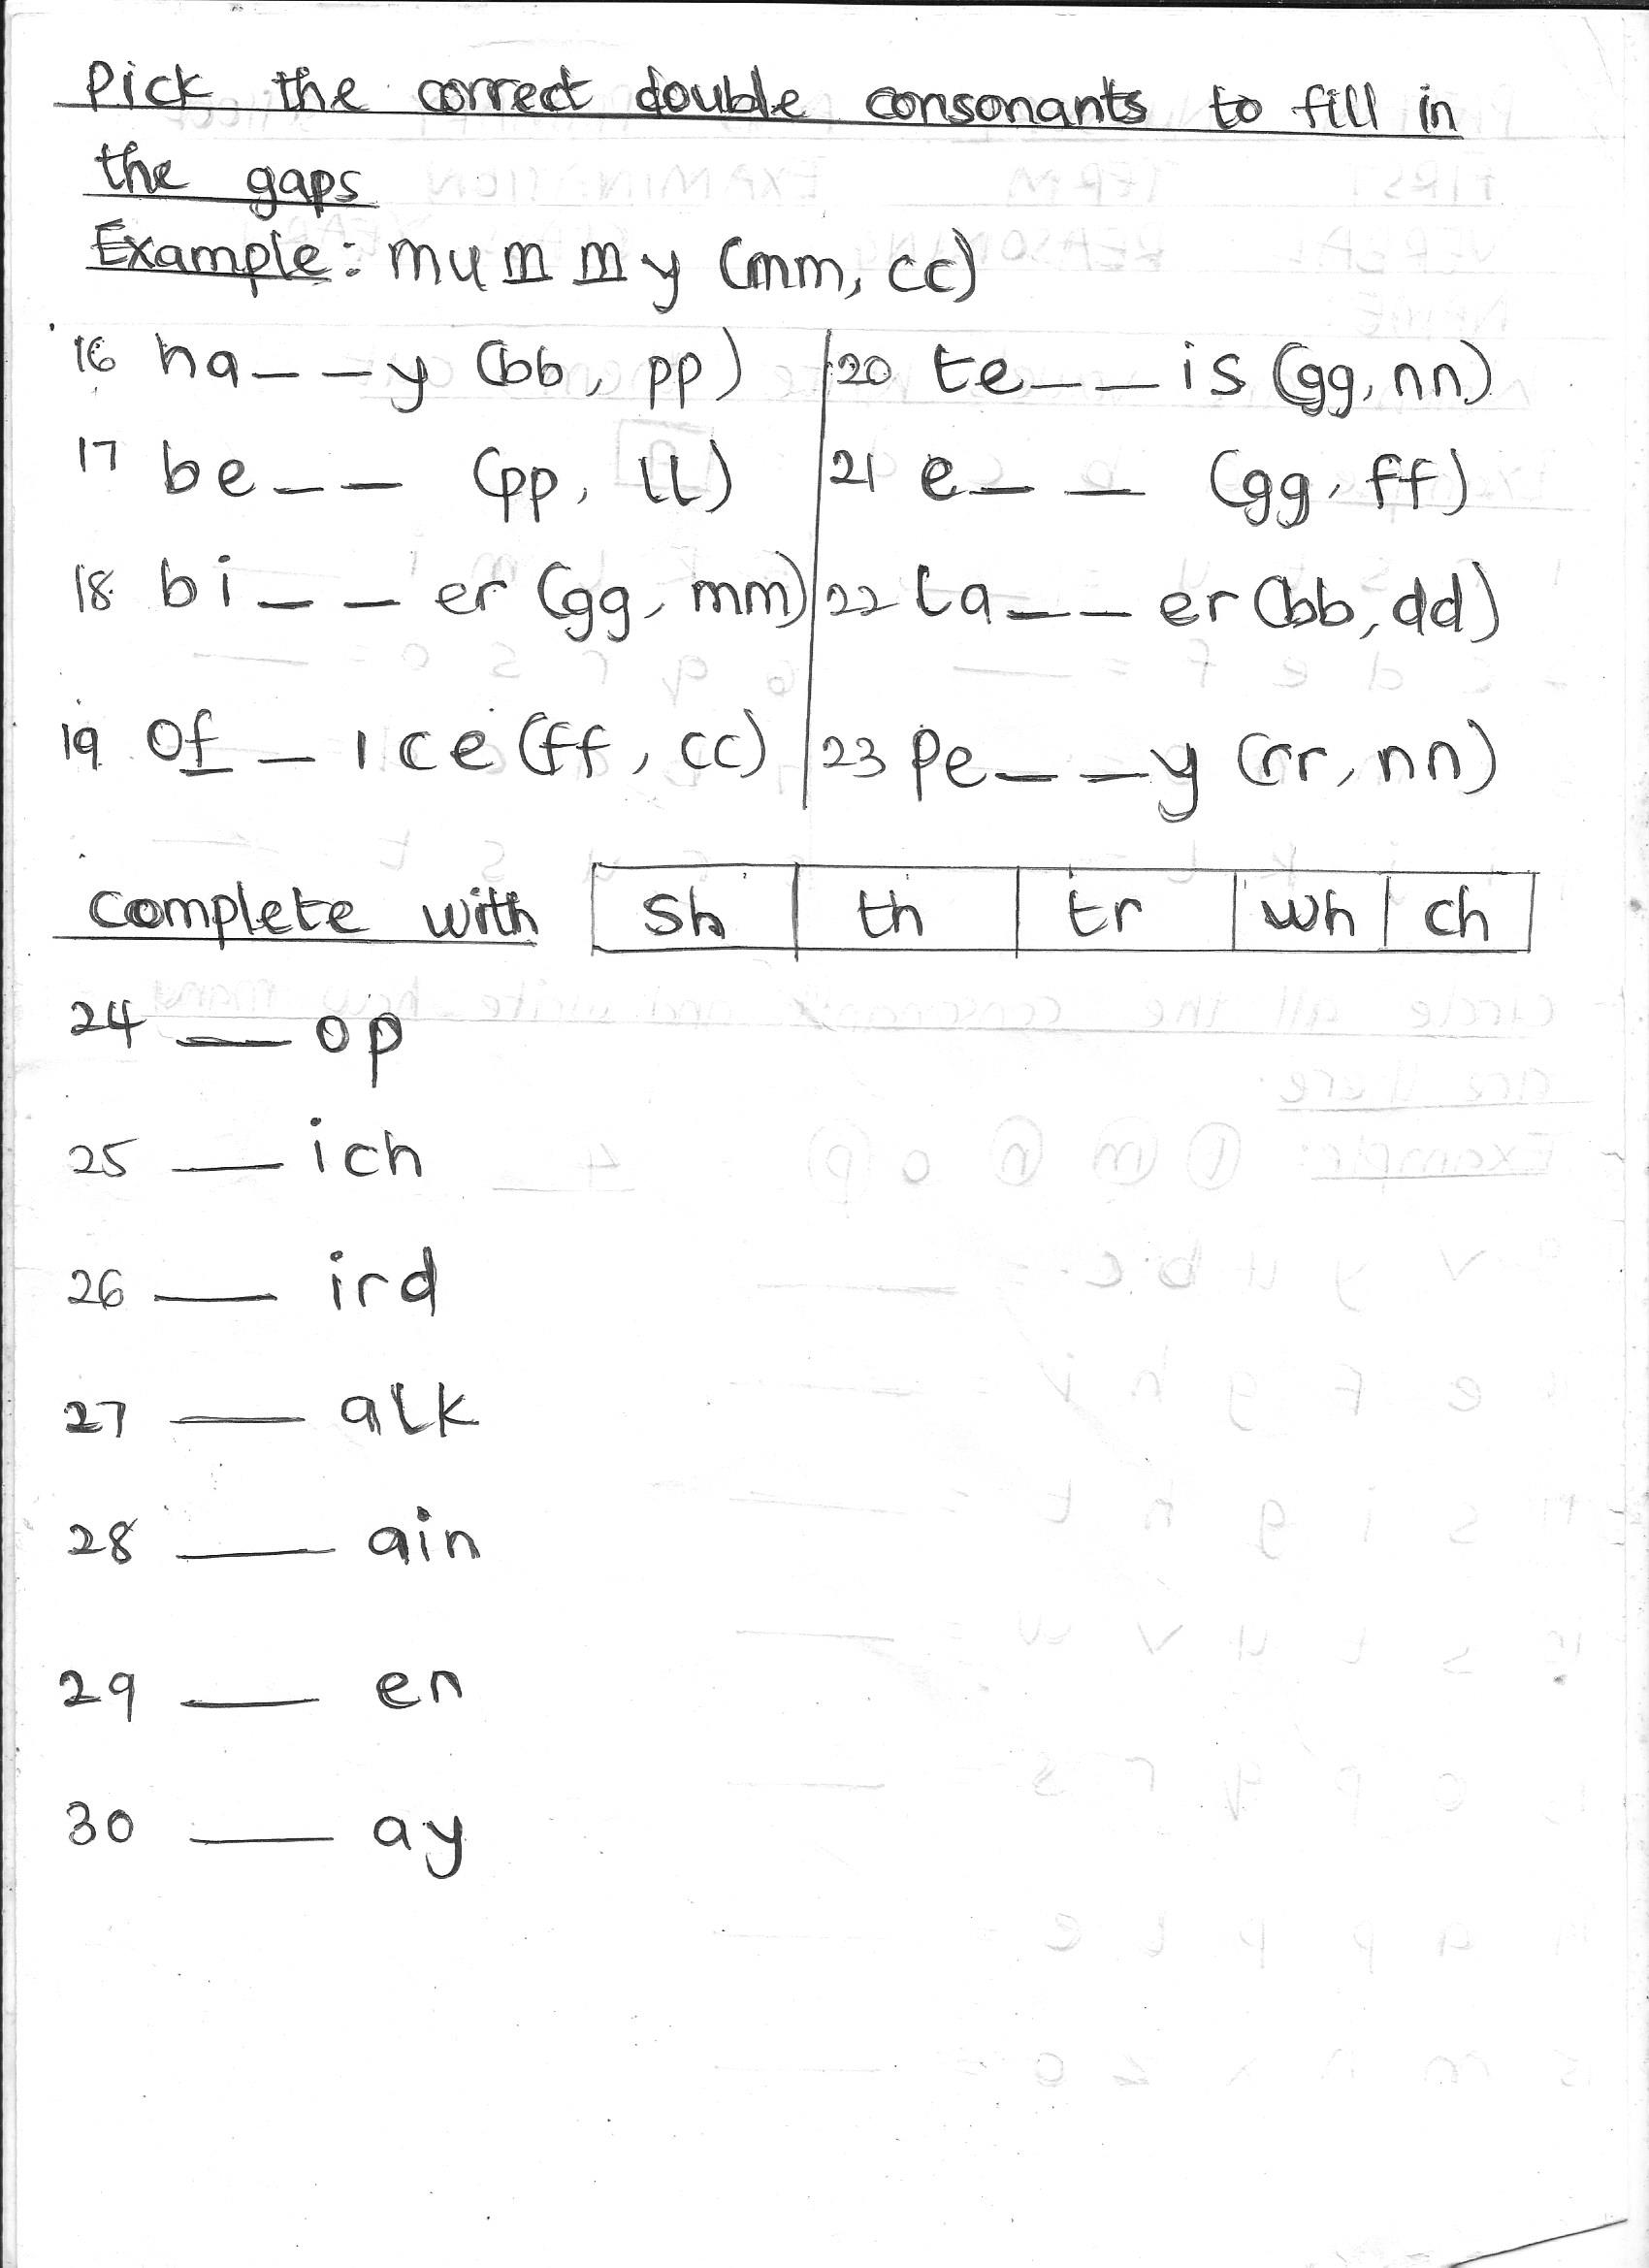 Pick the correct double consonants to fill in
the gaps
Example: mummy (mm, cc)
16 ha__y (bb, pp)
17 be__ (pp, ll)
18 bi__er (gg, mm)
19 Of_ice (ff, cc)
20 te__is (gg, nn)
21 e__ (gg, ff)
22 la__er (bb, dd)
23 Pe__y (rr, nn)
Complete with sh th tr wh ch
24 __op
25 __ich
26 __ird
27 __alk
28 __ain
29 __en
30 __ay